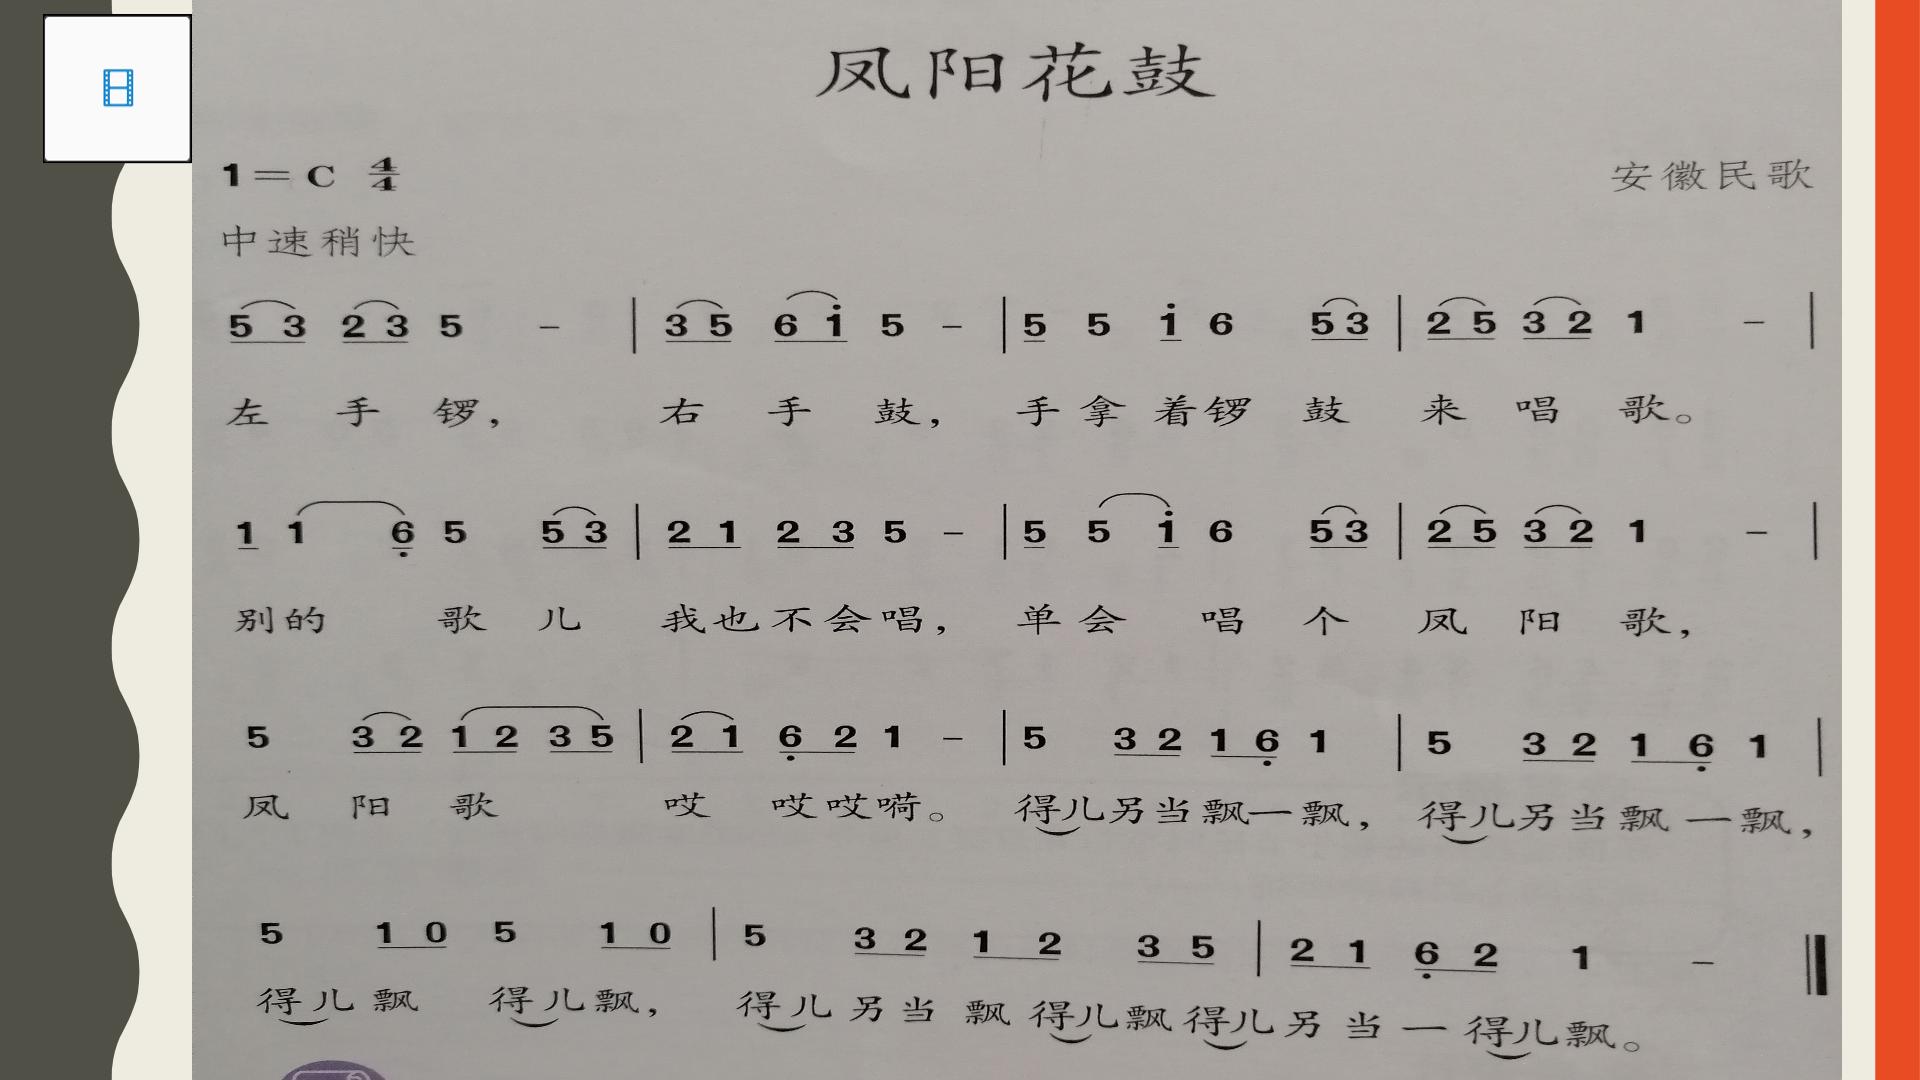 凤阳花鼓
1=C 4/4
安徽民歌
中速稍快
5 3 2 3 5 - | 3 5 6 i 5 - | 5 5 i 6 5 3 | 2 5 3 2 1 - |
左 手 锣， 右 手 鼓， 手 拿 着 锣 鼓 来 唱 歌。
1 1 6 5 5 3 | 2 1 2 3 5 - | 5 5 i 6 5 3 | 2 5 3 2 1 - |
别 的 歌 儿 我 也 不 会 唱， 单 会 唱 个 凤 阳 歌，
5 3 2 1 2 3 5 | 2 1 6 2 1 - | 5 3 2 1 6 1 | 5 3 2 1 6 1 |
凤 阳 歌 哎 哎 哎 嗬。 得儿 另 当 飘 一 飘， 得儿 另 当 飘 一 飘，
5 1 0 5 1 0 | 5 3 2 1 2 3 5 | 2 1 6 2 1 - ‖
得儿 飘 得儿 飘， 得儿 另 当 飘 得儿 飘 得儿 另 当 一 得儿 飘。